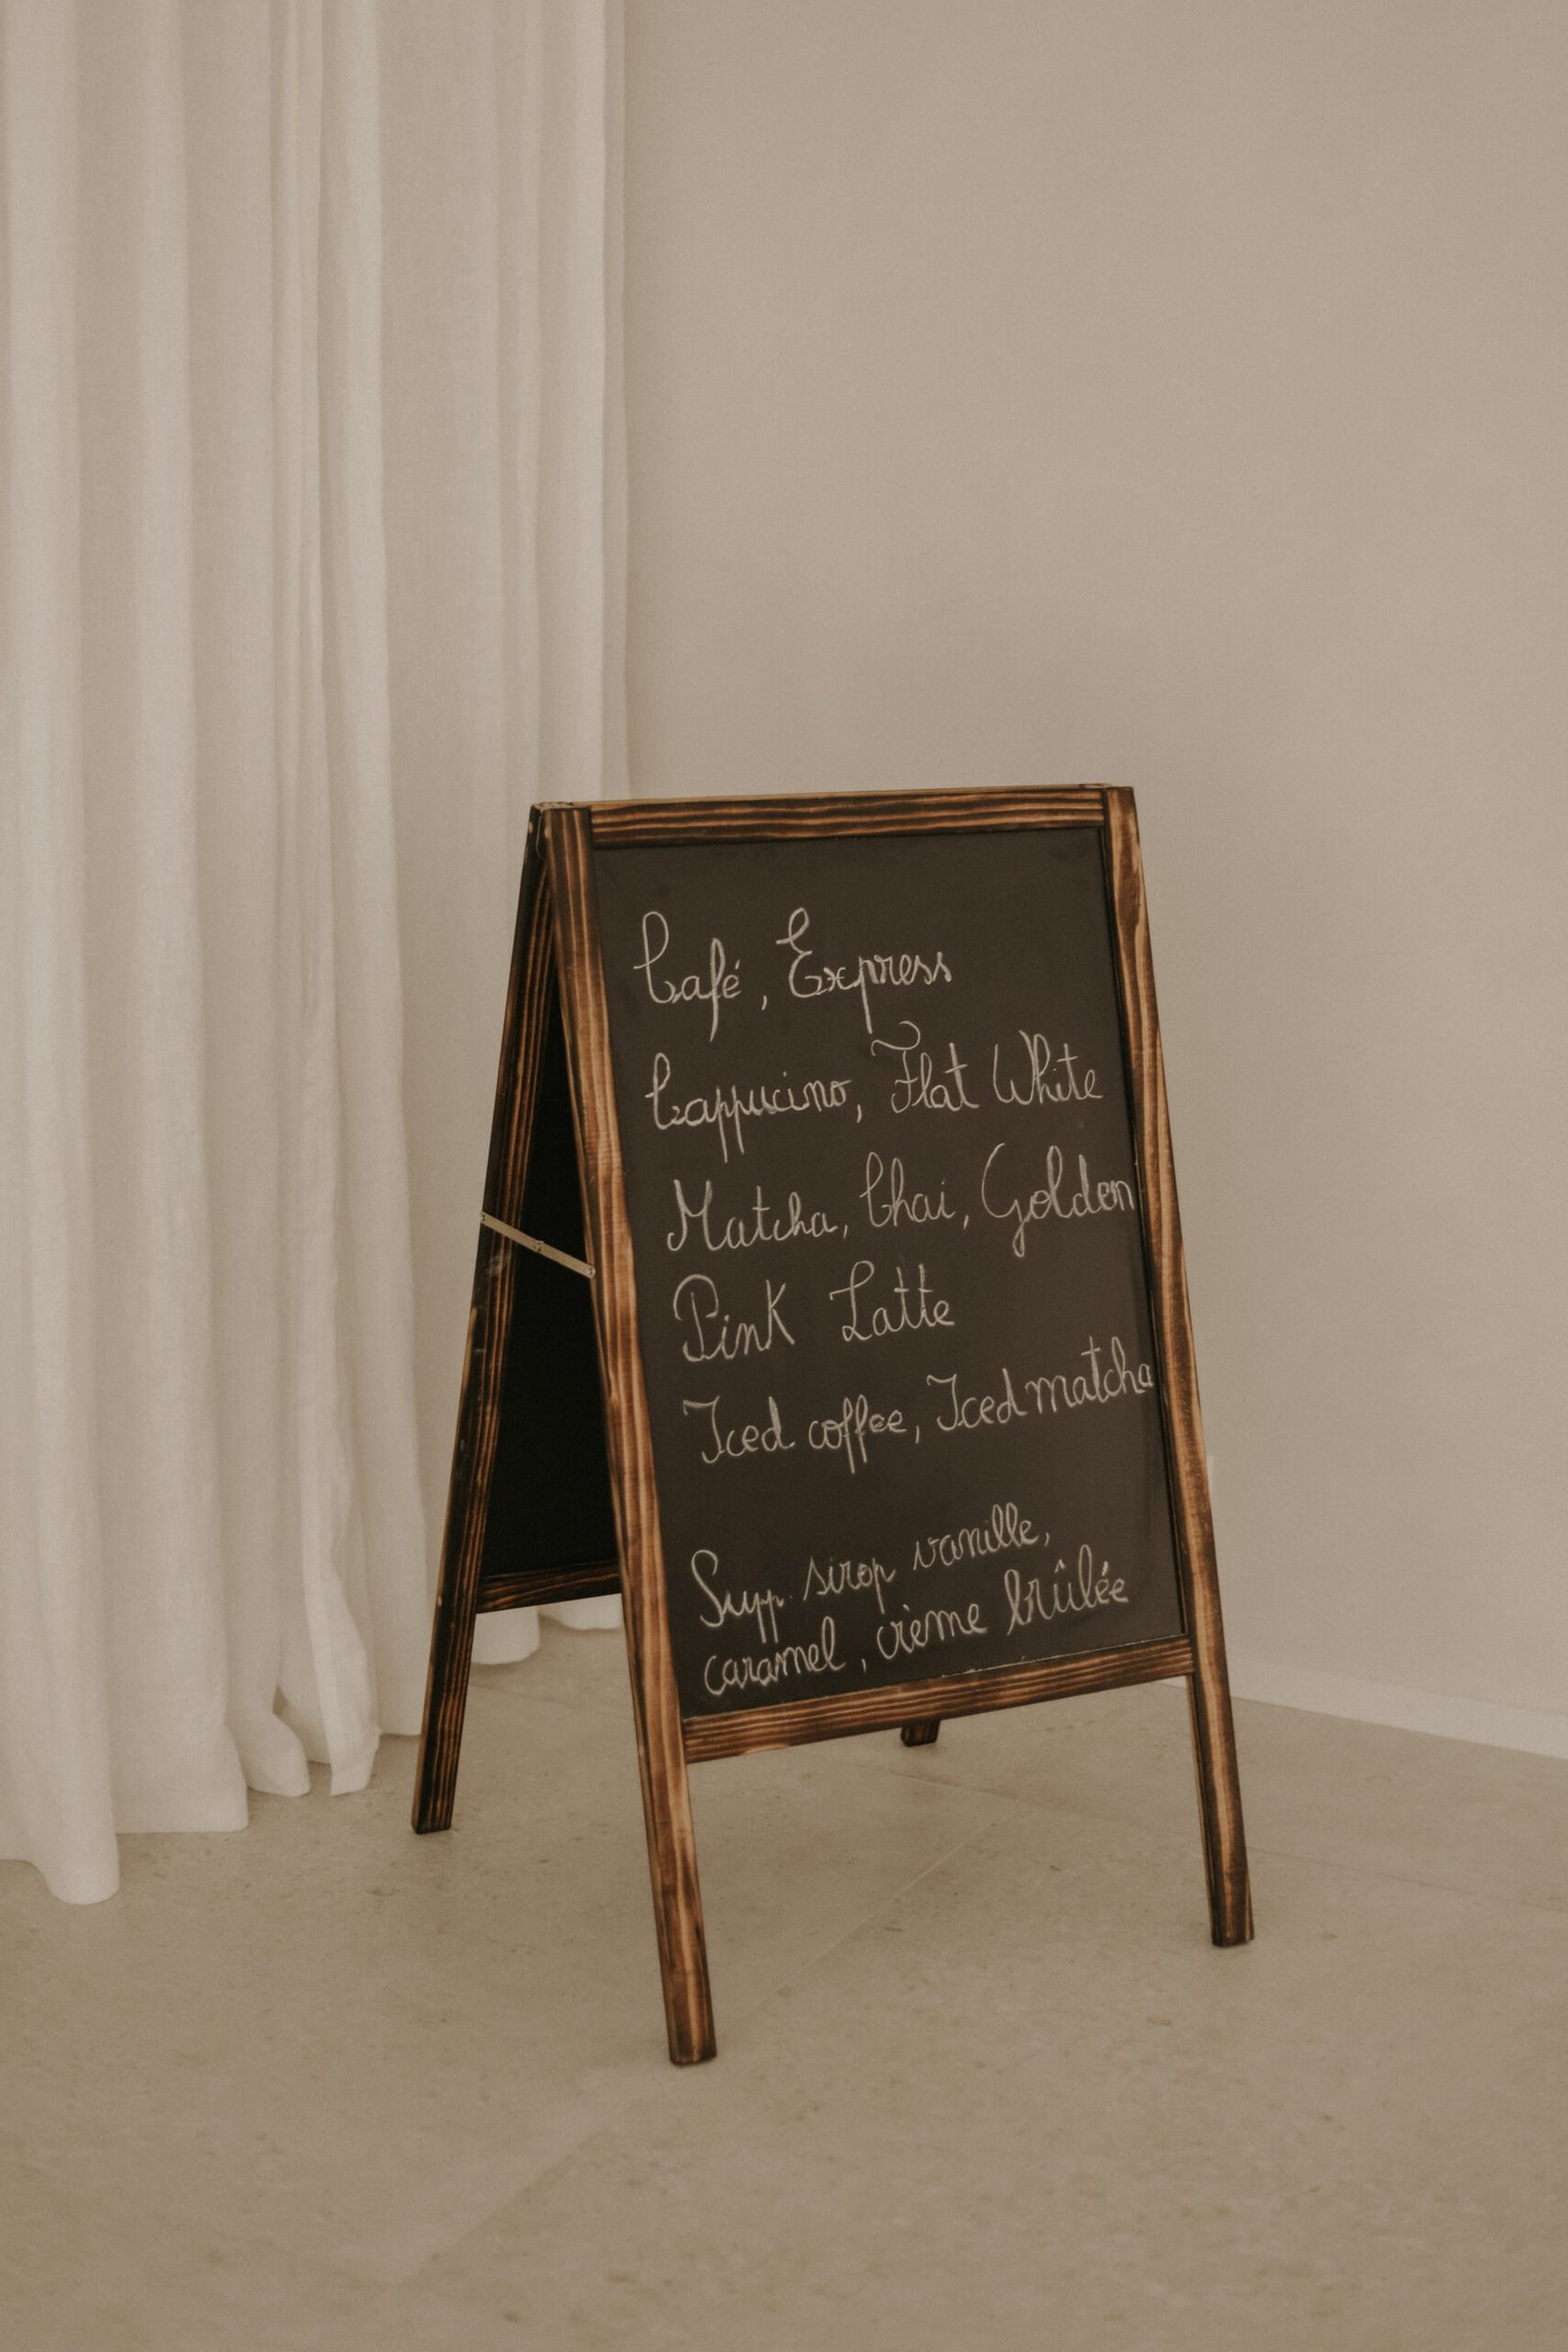 Café, Express
Cappucino, Flat White
Matcha, Chai, Golden
Pink Latte
Iced coffee, Iced matcha
Supp. sirop vanille,
caramel, crème brûlée